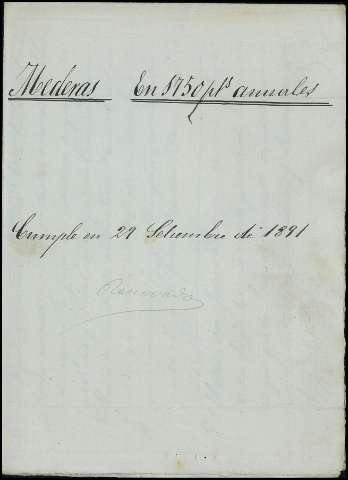 Mederas En 8750 pts annales
Cumple en 29 Setiembre de 1891
Renovada